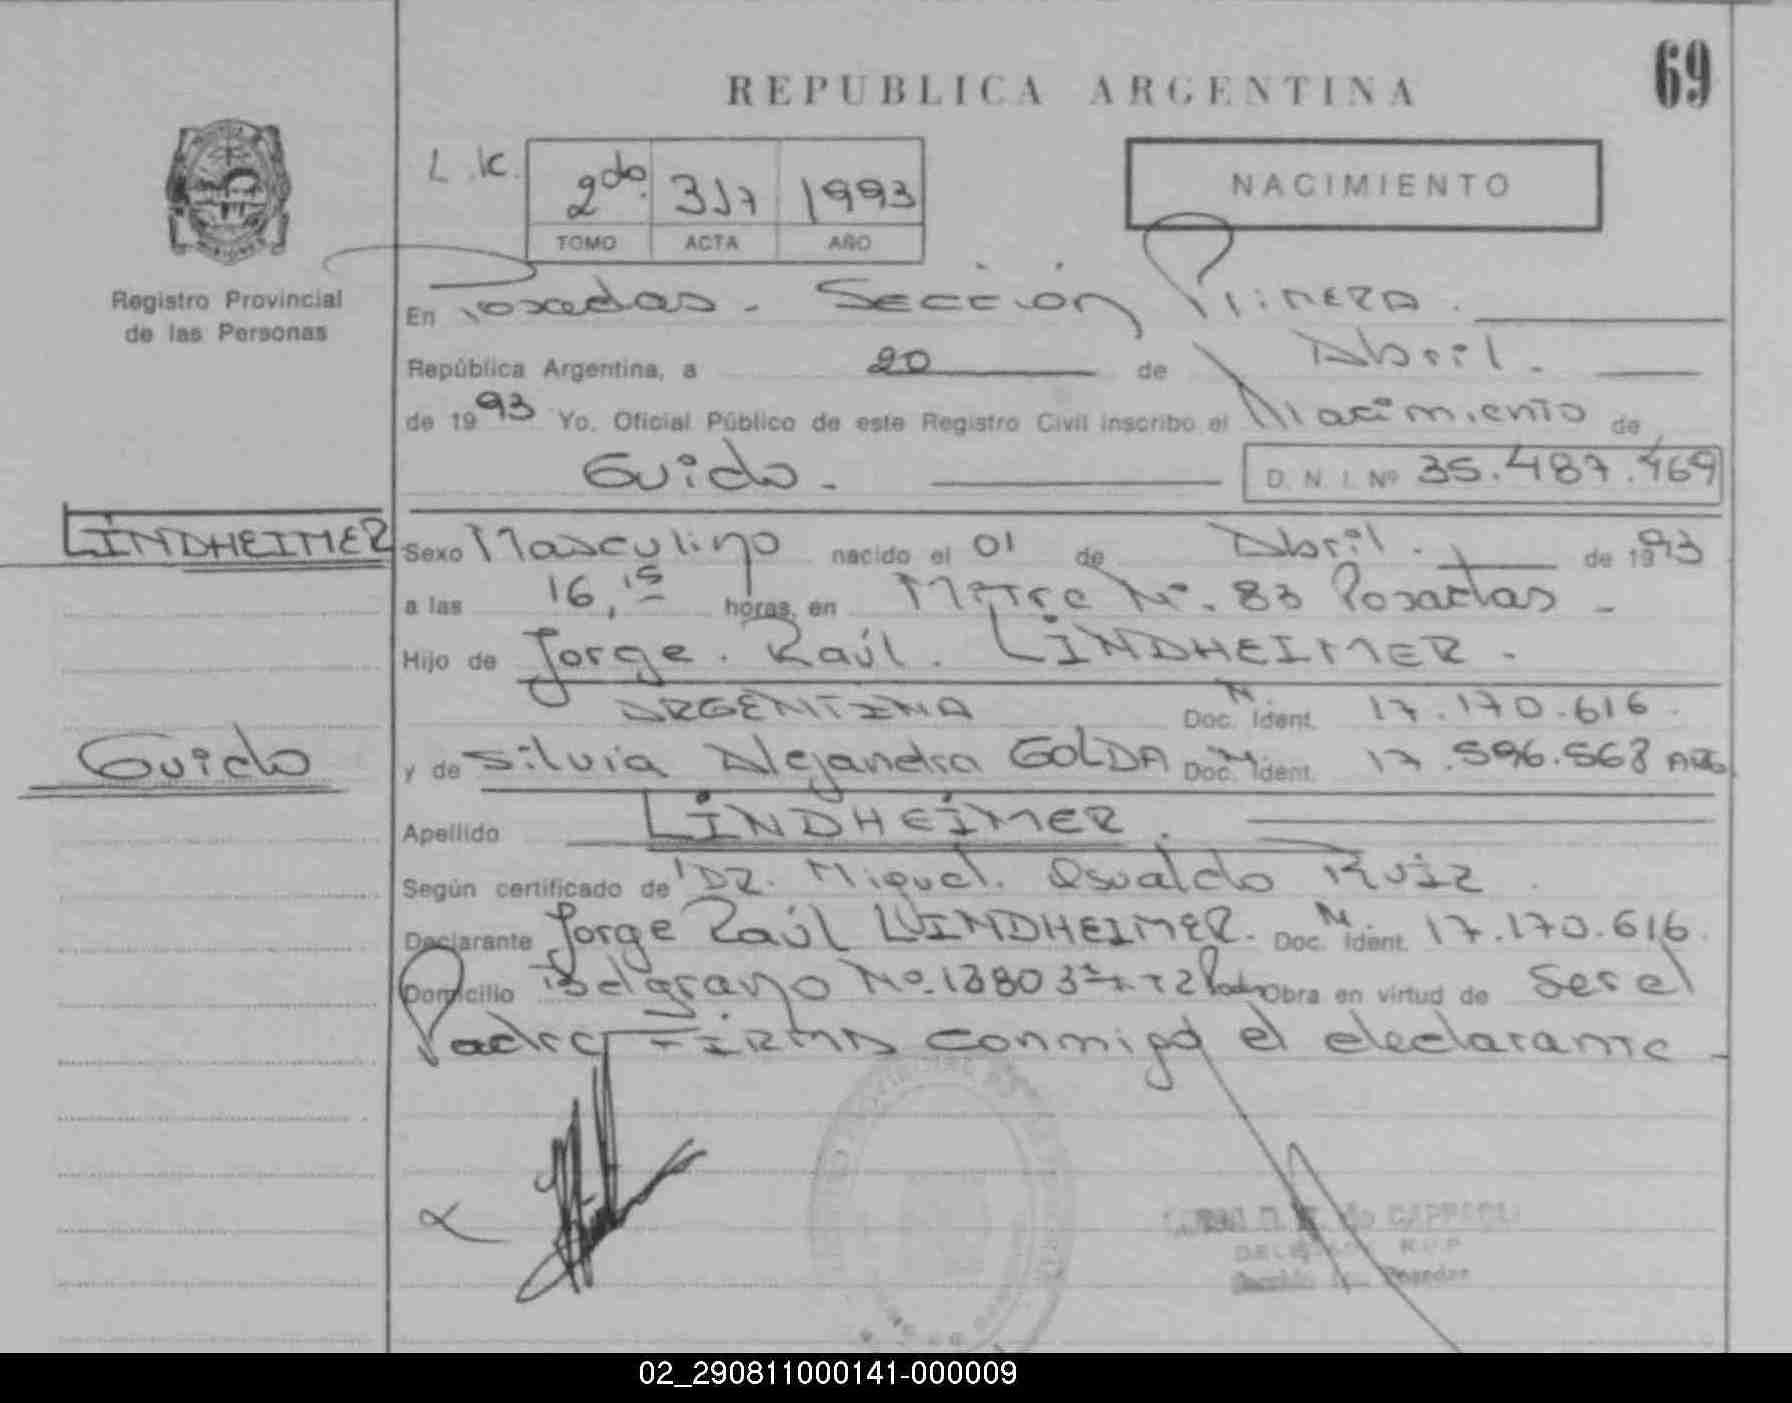 69
REPUBLICA ARGENTINA
L.K.
2do. 317 1993
TOMO ACTA AÑO
NACIMIENTO
Registro Provincial
de las Personas
En Posadas. Sección Primera.
República Argentina, a 20 de Abril.
de 1993 Yo, Oficial Público de este Registro Civil inscribo el Nacimiento de
Guido. D. N. I. Nº 35.487.469
LINDHEIMER
Sexo Masculino nacido el 01 de Abril. de 1993
a las 16,15 horas, en Mitre Nº. 83 Posadas
Hijo de Jorge. Raúl. LINDHEIMER.
ARGENTINA Doc. Ident. M. 17.170.616.
Guido
y de Silvia Alejandra GOLDA Doc. Ident. M. 17.596.568 ARG
Apellido LINDHEIMER.
Según certificado de DR. Miguel. Osvaldo Ruiz.
Declarante Jorge Raúl LINDHEIMER. Doc. Ident. M. 17.170.616.
Domicilio Belgrano Nº. 1380 Obra en virtud de Ser el
Padre FIRMA conmigo el declarante
DELEGADA R.C.P.
Posadas
02_290811000141-000009